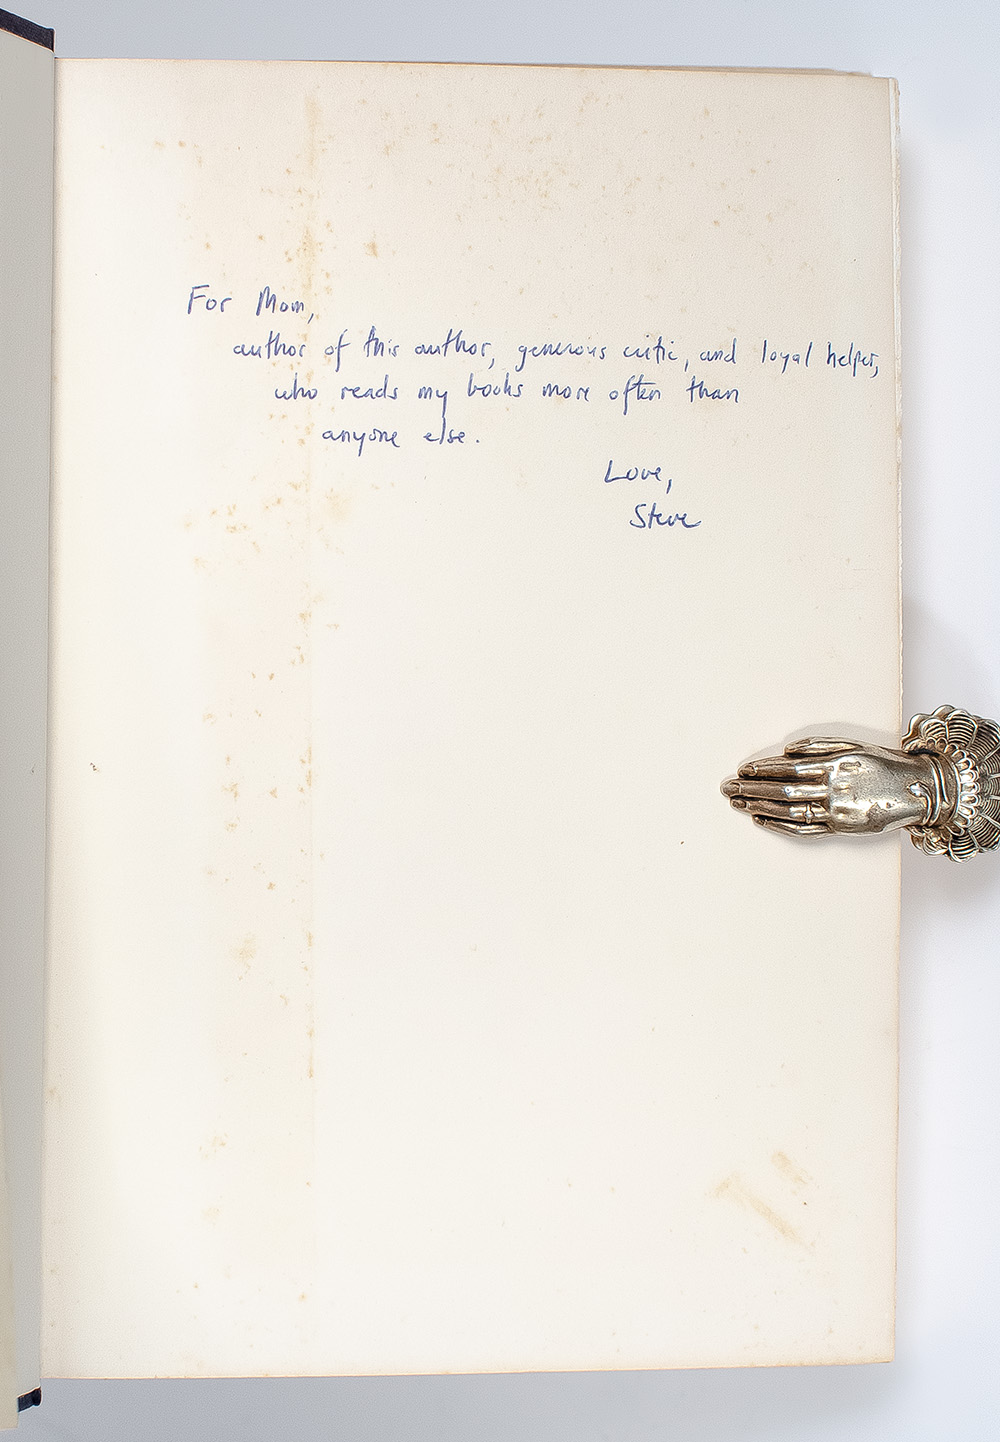 For Mom,
author of this author, generous critic, and loyal helper,
who reads my books more often than
anyone else.
Love,
Steve